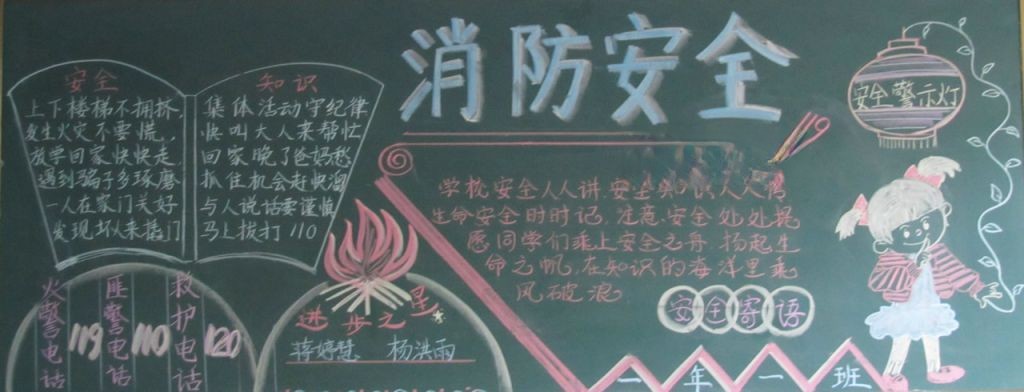 消防安全
安全 知识
上下楼梯不拥挤，集体活动守纪律
发生火灾不要慌，快叫大人来帮忙
放学回家快快走 回家晚了爸妈愁
遇到骗子多琢磨 抓住机会赶快溜
一人在家门关好 与人说话要谨慎
发现坏人来撬门 马上拨打110
安全警示灯
学校安全人人讲.安全知识人人懂
生命安全时时记.注意安全处处提
愿同学们乘上安全之舟.扬起生
命之帆.在知识的海洋里乘
风破浪.
安全寄语
火警电话119
匪警电话110
救护电话120
进步之星
蒋婷慧 杨洪雨
一年一班